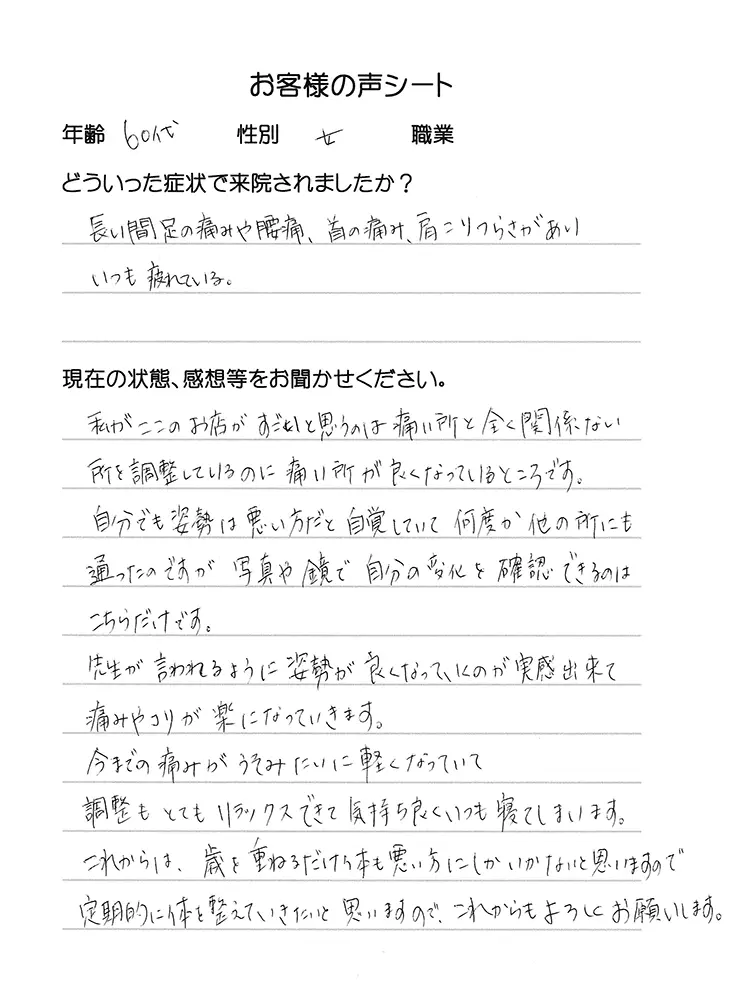 お客様の声シート
年齢 60代 性別 女 職業
どういった症状で来院されましたか？
長い間足の痛みや腰痛、首の痛み、肩こりつらさがあり
いつも疲れている。
現在の状態、感想等をお聞かせください。
私がここのお店がすごいと思うのは痛い所と全く関係ない
所を調整しているのに痛い所が良くなっているところです。
自分でも姿勢は悪い方だと自覚していて何度か他の所にも
通ったのですが写真や鏡で自分の変化を確認できるのは
こちらだけです。
先生が言われるように姿勢が良くなっていくのが実感出来て
痛みやコリが楽になっていきます。
今までの痛みがうそみたいに軽くなっていて
調整もとてもリラックスできて気持ち良くいつも寝てしまいます。
これからは、歳を重ねるだけ体も悪い方にしかいかないと思いますので
定期的に体を整えていきたいと思いますので、これからもよろしくお願いします。